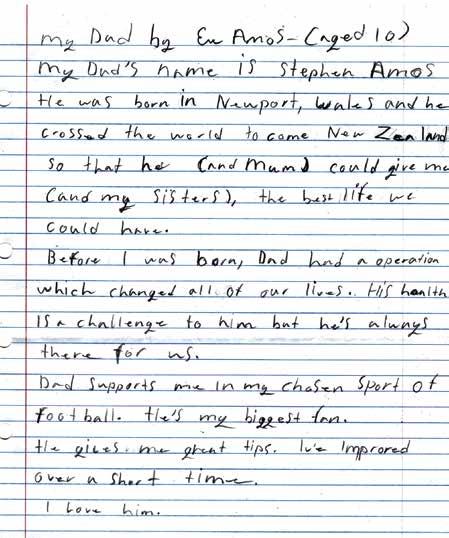 my Dad by Eu Amos - (aged 10)
My Dad's name is Stephen Amos
He was born in Newport, Wales and he
crossed the world to come New Zealand
so that he (and Mum) could give me
(and my sisters), the best life we
could have.
Before I was born, Dad had a operation
which changed all of our lives. His health
Is a challenge to him but he's always
there for us.
Dad supports me in my chosen sport of
football. He's my biggest fan.
He gives me great tips. Iv'e Improved
over a short time.
I Love him.